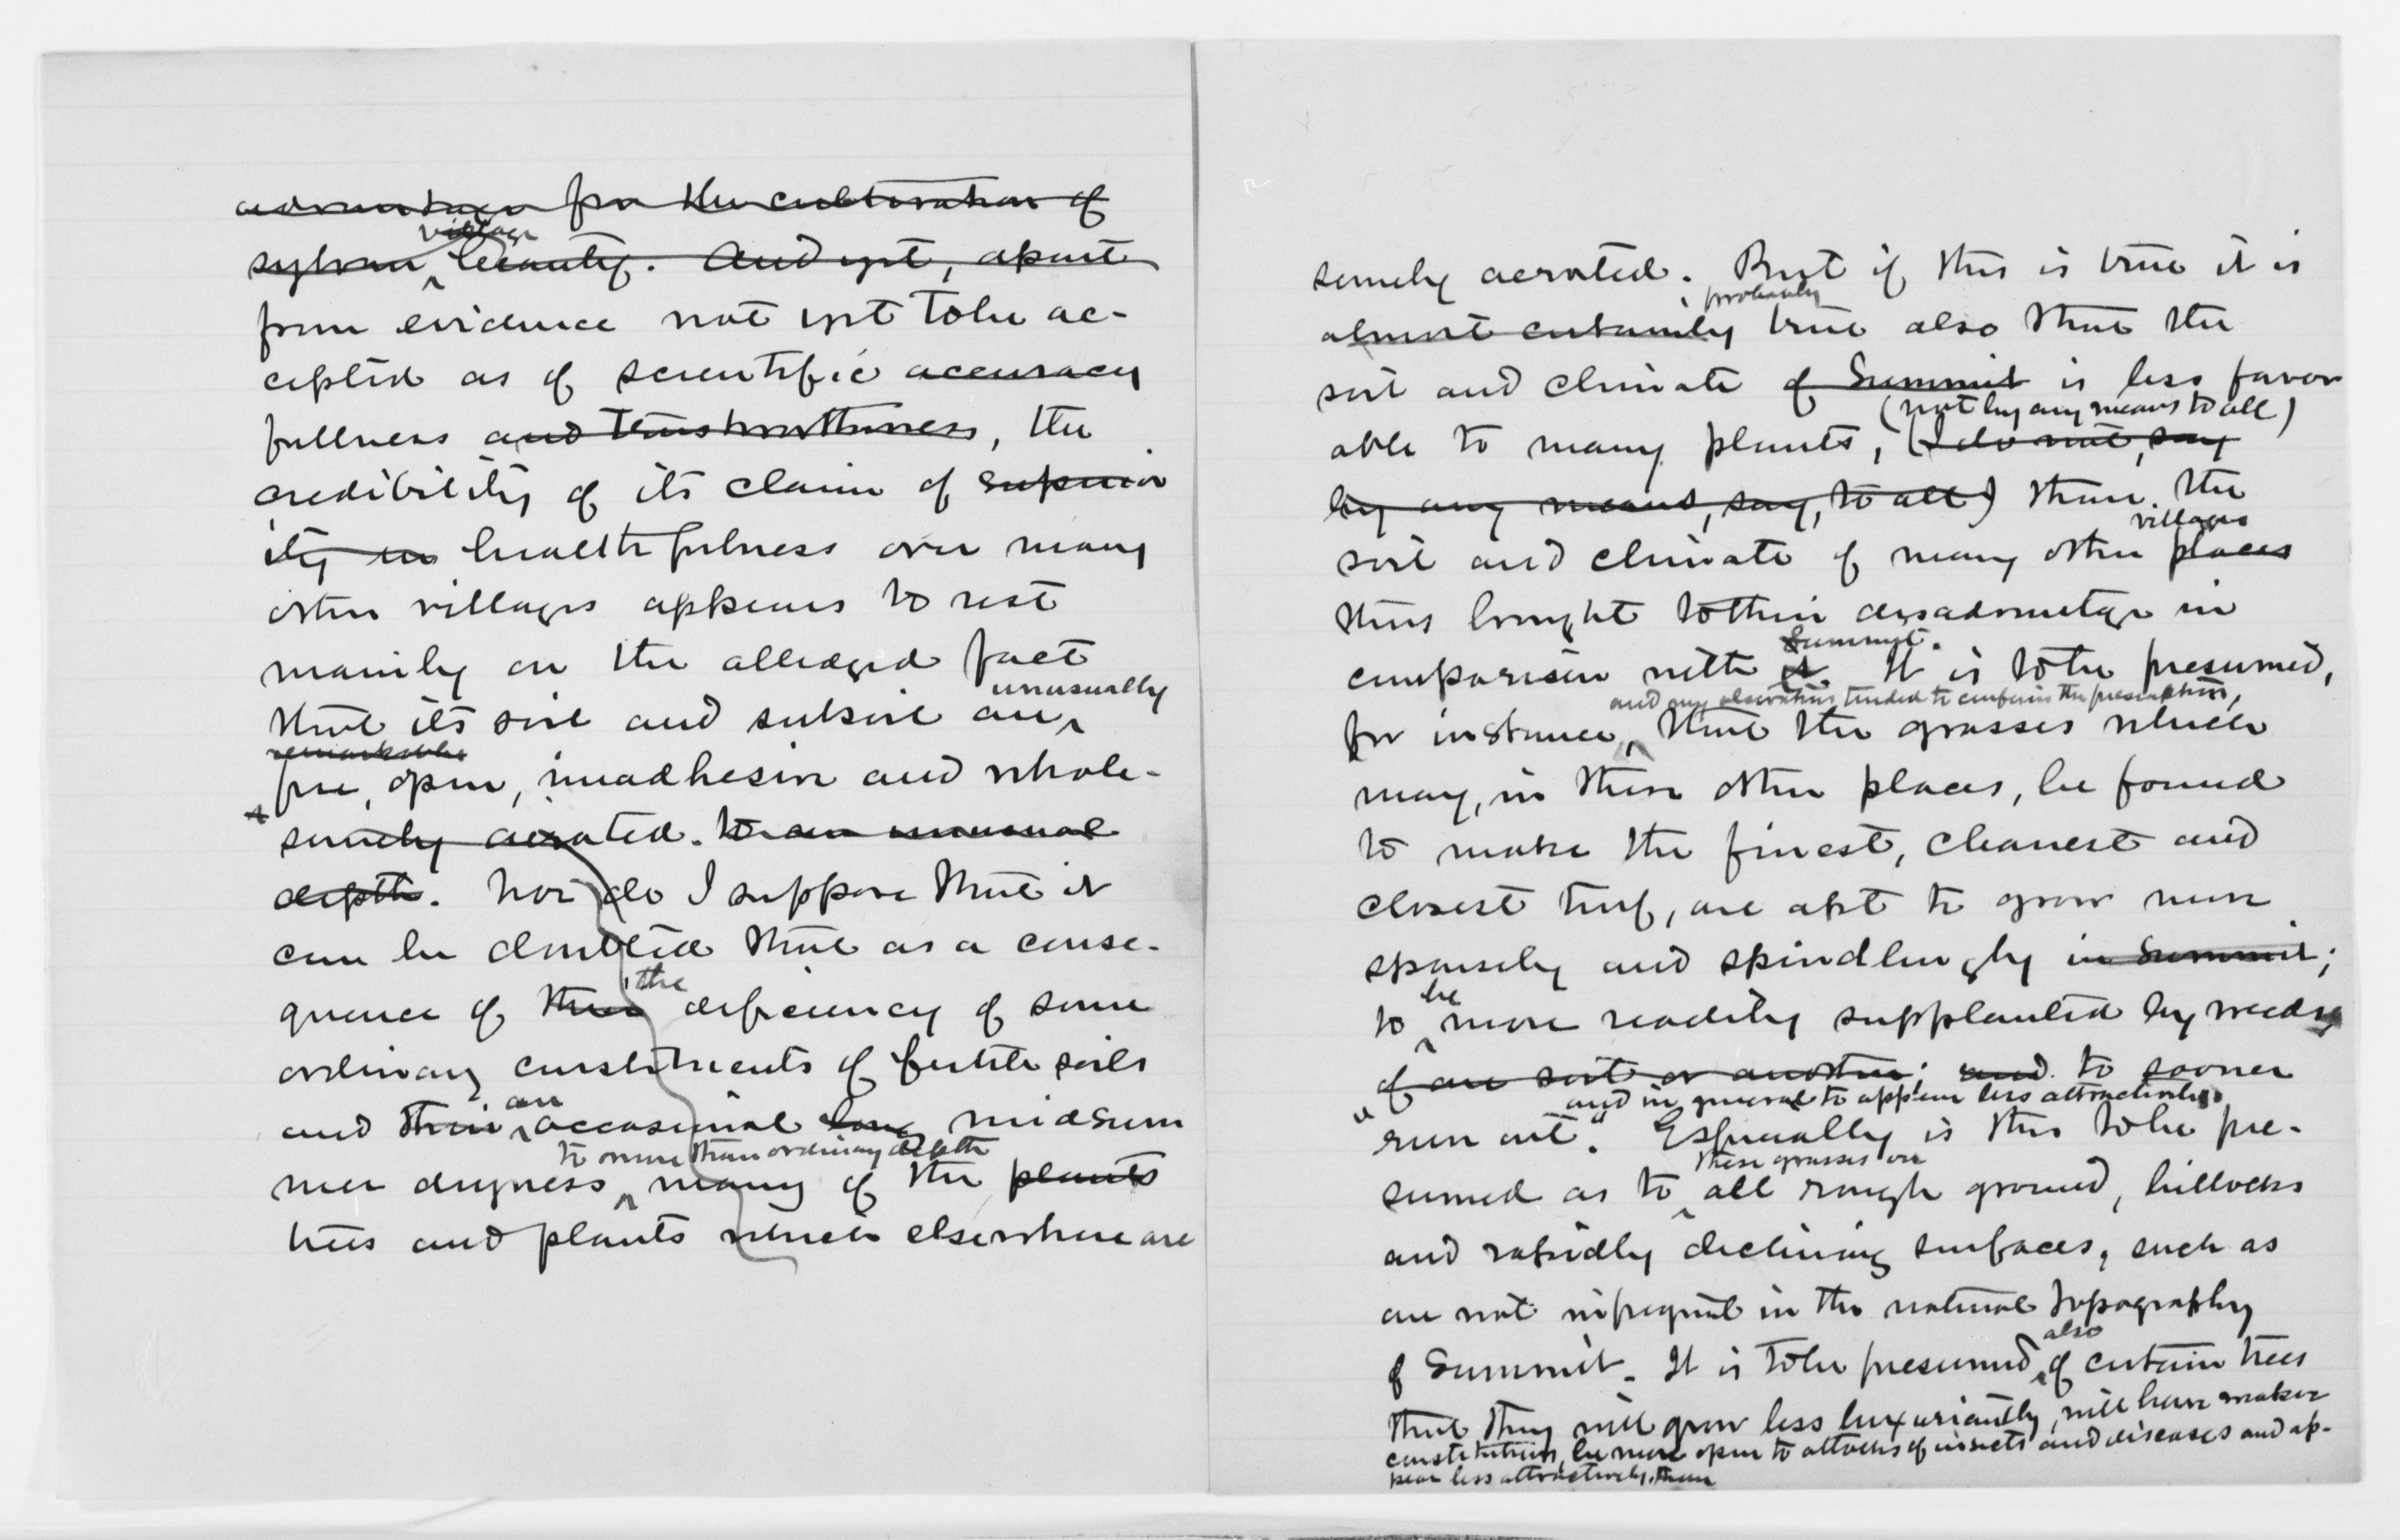 advantages for the cultivation of
village
sylvan beauty. And yet, apart
from evidence not yet to be ac-
cepted as of scientific accuracy
fullness and trustworthiness, the
credibility of its claim of superior
ity in healthfulness over many
other villages appears to rest
mainly on the alledged fact
unusually
that its soil and subsoil are
remarkable
free, open, inadhesive and whole-
somely aerated. to an unusual
depth. Nor do I suppose that it
can be doubted that as a conse-
the
quence of their deficiency of some
ordinary constituents of fertile soils
an
and their occasional long midsum
to more than ordinary depth
mer dryness many of the plants
trees and plants which elsewhere are
somely aerated. But if this is true it is
probably
almost certainly true also that the
soil and climate of Summit is less favor
(not by any means to all)
able to many plants, (I do not, say
by any means, say, to all) than the
villages
soil and climate of many other places
thus brought to their disadvantage in
Summit.
comparison with it. It is to be presumed,
and my observations tended to confirm the presumption,
for instance, that the grasses which
may, in these other places, be found
to make the finest, cleanest and
closest turf, are apt to grow more
sparsely and spindlingly in Summit;
be
to more readily supplanted by weeds
of one sort or another; and to sooner
and in general to appear less attractively.
"run out." Especially is this to be pre-
these grasses on
sumed as to all rough ground, hillocks
and rapidly declining surfaces, such as
are not infrequent in the natural topography
also
of Summit. It is to be presumed of certain trees
that they will grow less luxuriantly, will have weaker
constitutions, be more open to attacks of insects and diseases and ap-
pear less attractively, than